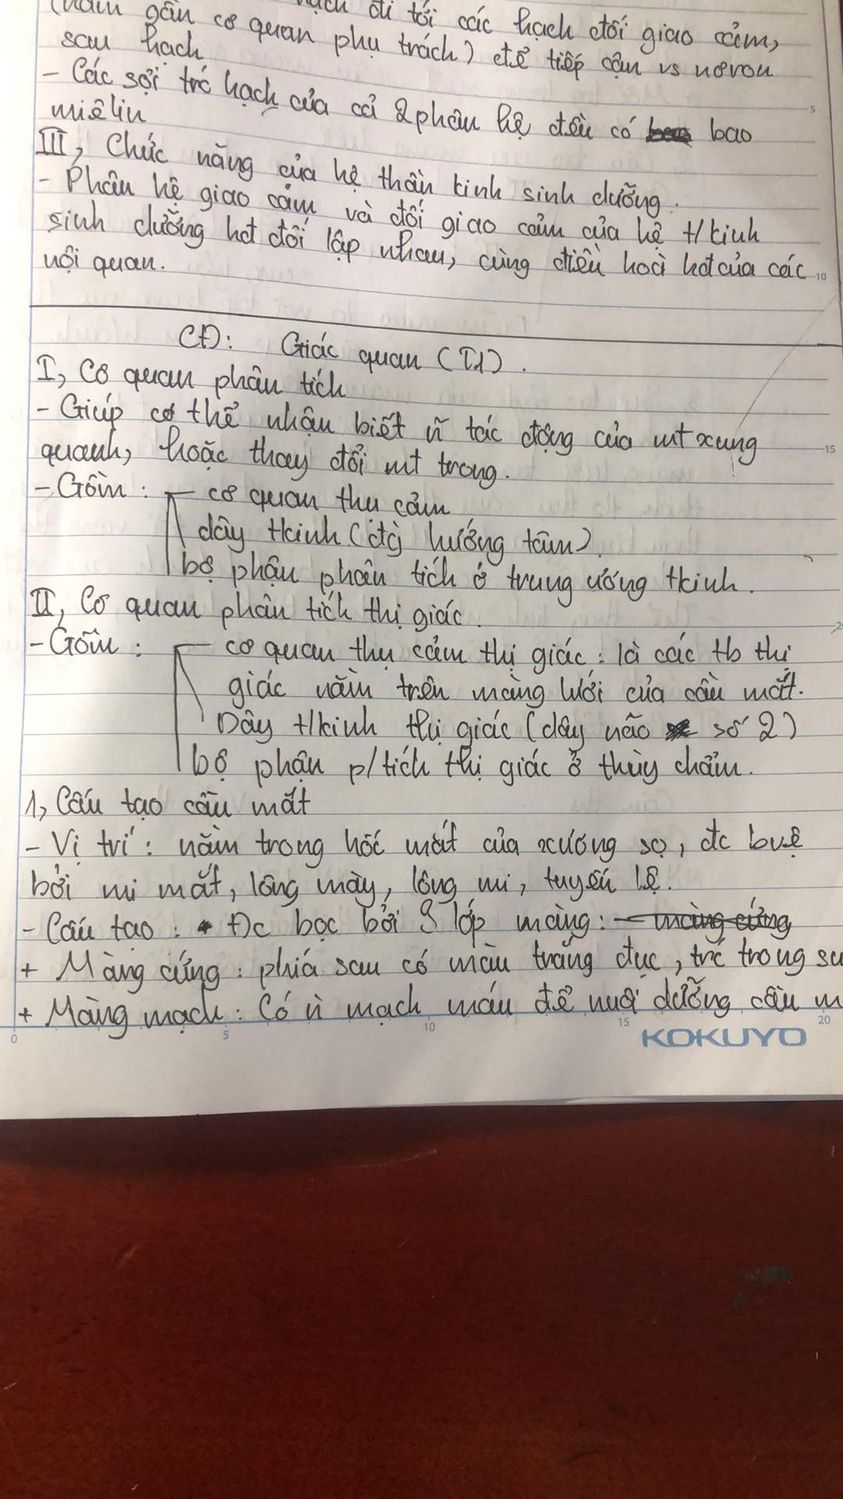 (nằm gần cơ quan phụ trách) để tiếp cận vs nơron
hạch đi tới các hạch đối giao cảm,
sau hạch
- Các sợi trc hạch của cả 2 phân hệ đều có bao
miêlin
III, Chức năng của hệ thần kinh sinh dưỡng.
- Phân hệ giao cảm và đối giao cảm của hệ t/kinh
sinh dưỡng hđ đối lập nhau, cùng điều hoà hđ của các
nội quan.
CĐ: Giác quan (T1).
I, Cơ quan phân tích
- Giúp cơ thể nhận biết ~ tác động của mt xung
quanh, hoặc thay đổi mt trong.
- Gồm: cơ quan thu cảm
dây tkinh (đg hướng tâm)
bộ phận phân tích ở trung ương tkinh.
II, Cơ quan phân tích thị giác.
- Gồm: cơ quan thụ cảm thị giác: là các tb thị
giác nằm trên màng lưới của cầu mắt.
Dây t/kinh thị giác (dây não số 2)
bộ phận p/tích thị giác ở thùy chẩm.
1, Cấu tạo cầu mắt
- Vị trí: nằm trong hốc mắt của xương sọ, đc bvệ
bởi mi mắt, lông mày, lông mi, tuyến lệ.
- Cấu tạo: * Đc bọc bởi 3 lớp màng: màng cứng
+ Màng cứng: phía sau có màu trắng đục, trc trong su
+ Màng mạch: Có ~ mạch máu để nuôi dưỡng cầu m
0 5 10 15 20
KOKUYO